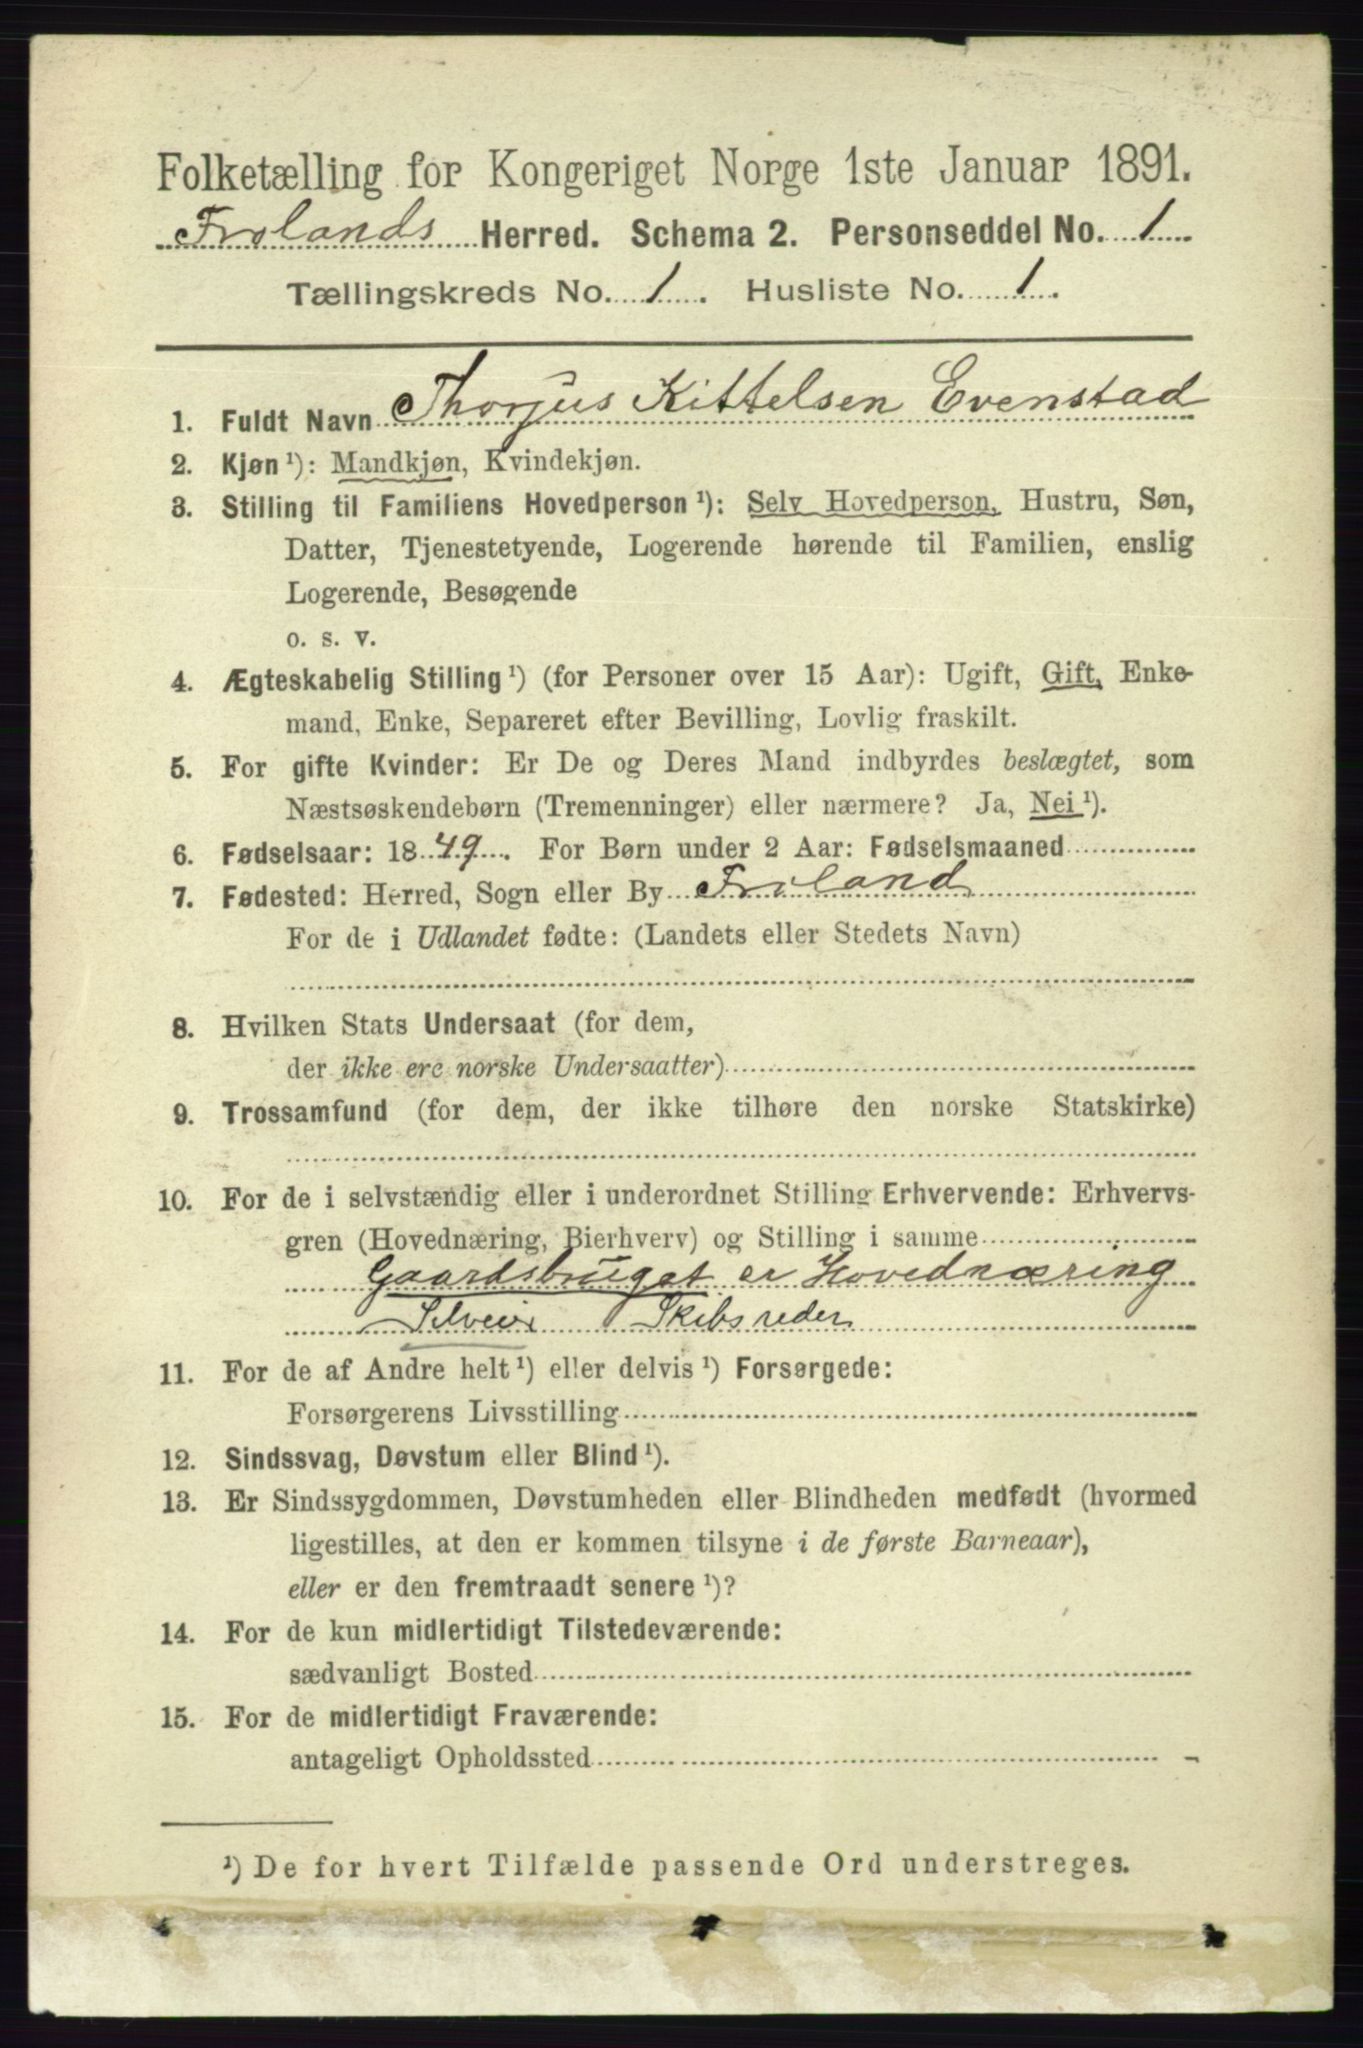 Folketælling for Kongeriget Norge 1ste Januar 1891.
Frolands Herred. Schema 2. Personseddel No. 1
Tællingskreds No. 1. Husliste No. 1.
1. Fuldt Navn Thorjus Kittelsen Evenstad
2. Kjøn ¹): Mandkjøn, Kvindekjøn.
3. Stilling til Familiens Hovedperson ¹): Selv Hovedperson, Hustru, Søn,
Datter, Tjenestetyende, Logerende hørende til Familien, enslig
Logerende, Besøgende
o. s. v.
4. Ægteskabelig Stilling ¹) (for Personer over 15 Aar): Ugift, Gift, Enke-
mand, Enke, Separeret efter Bevilling, Lovlig fraskilt.
5. For gifte Kvinder: Er De og Deres Mand indbyrdes beslægtet, som
Næstsøskendebørn (Tremenninger) eller nærmere? Ja, Nei ¹).
6. Fødselsaar: 1849. For Børn under 2 Aar: Fødselsmaaned
7. Fødested: Herred, Sogn eller By Froland
For de i Udlandet fødte: (Landets eller Stedets Navn)
8. Hvilken Stats Undersaat (for dem,
der ikke ere norske Undersaatter)
9. Trossamfund (for dem, der ikke tilhøre den norske Statskirke)
10. For de i selvstændig eller i underordnet Stilling Erhvervende: Erhvervs-
gren (Hovednæring, Bierhverv) og Stilling i samme
Gaardsbruget er Hovednæring
Selveier Skibsreder
11. For de af Andre helt ¹) eller delvis ¹) Forsørgede:
Forsørgerens Livsstilling
12. Sindssvag, Døvstum eller Blind ¹).
13. Er Sindssygdommen, Døvstumheden eller Blindheden medfødt (hvormed
ligestilles, at den er kommen tilsyne i de første Barneaar),
eller er den fremtraadt senere ¹)?
14. For de kun midlertidigt Tilstedeværende:
sædvanligt Bosted
15. For de midlertidigt Fraværende:
antageligt Opholdssted
¹) De for hvert Tilfælde passende Ord understreges.